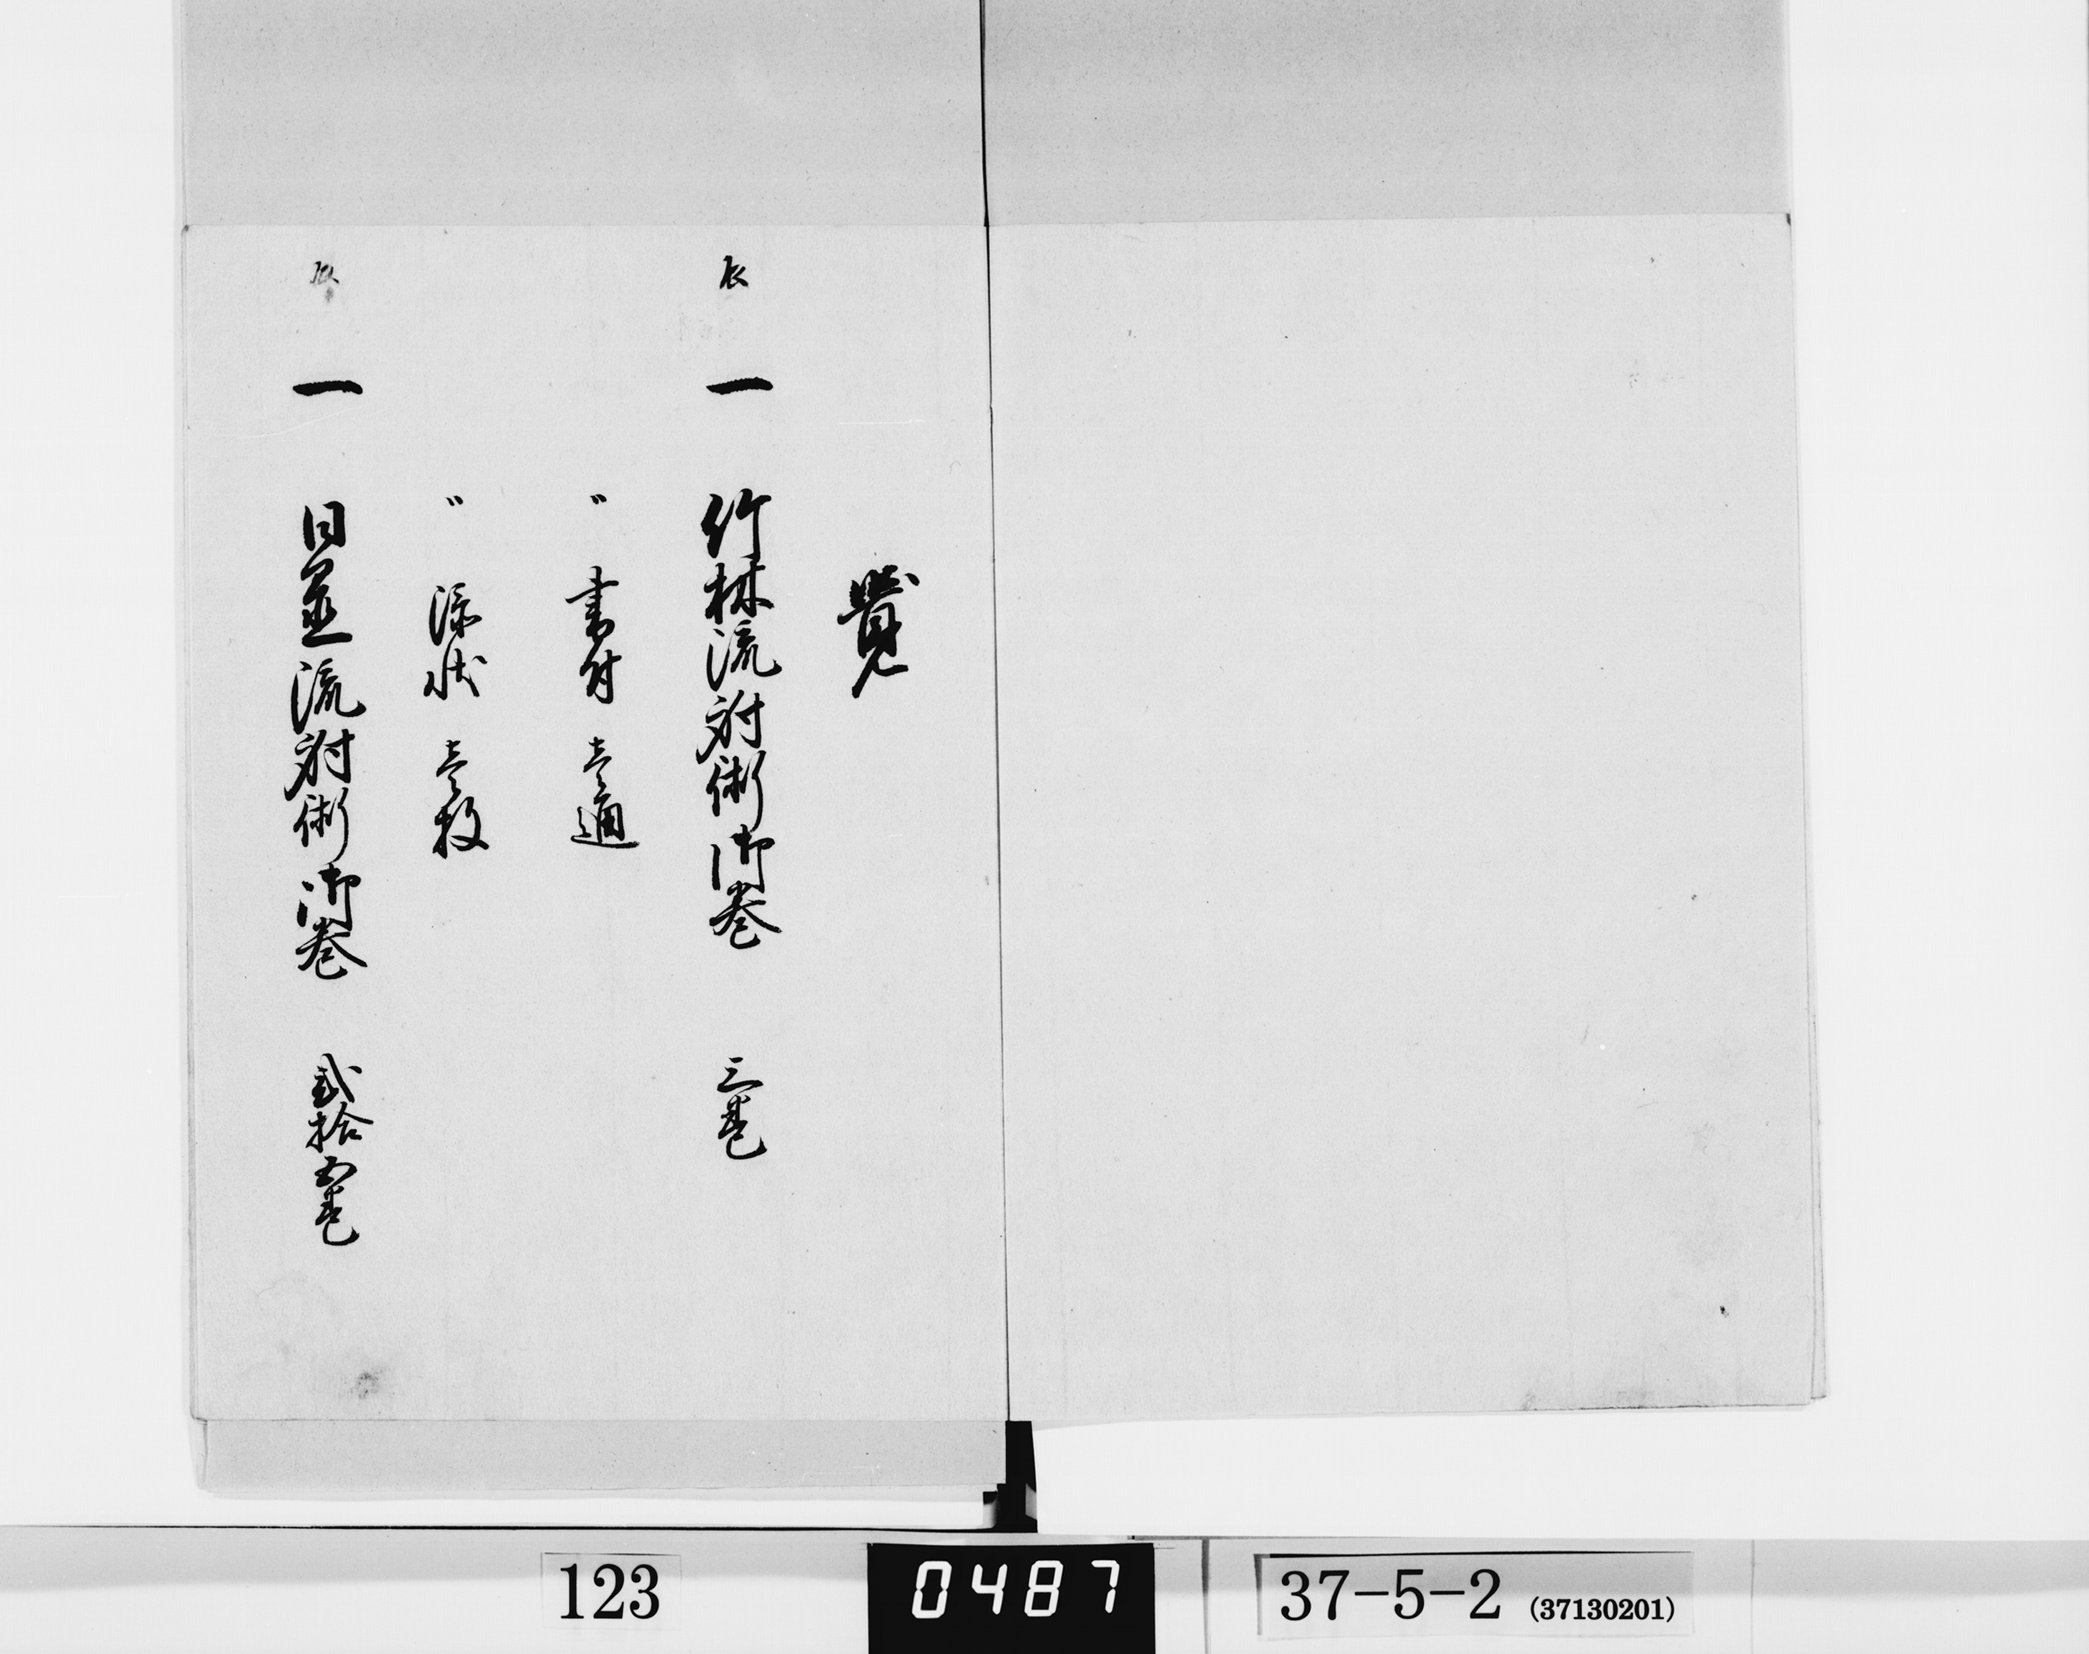 覺
一 竹林流射術御巻 三巻
〃 書付 壱通
〃 添状 壱枚
一 日置流射術御巻 弐拾五巻
123
0487
37-5-2 (37130201)